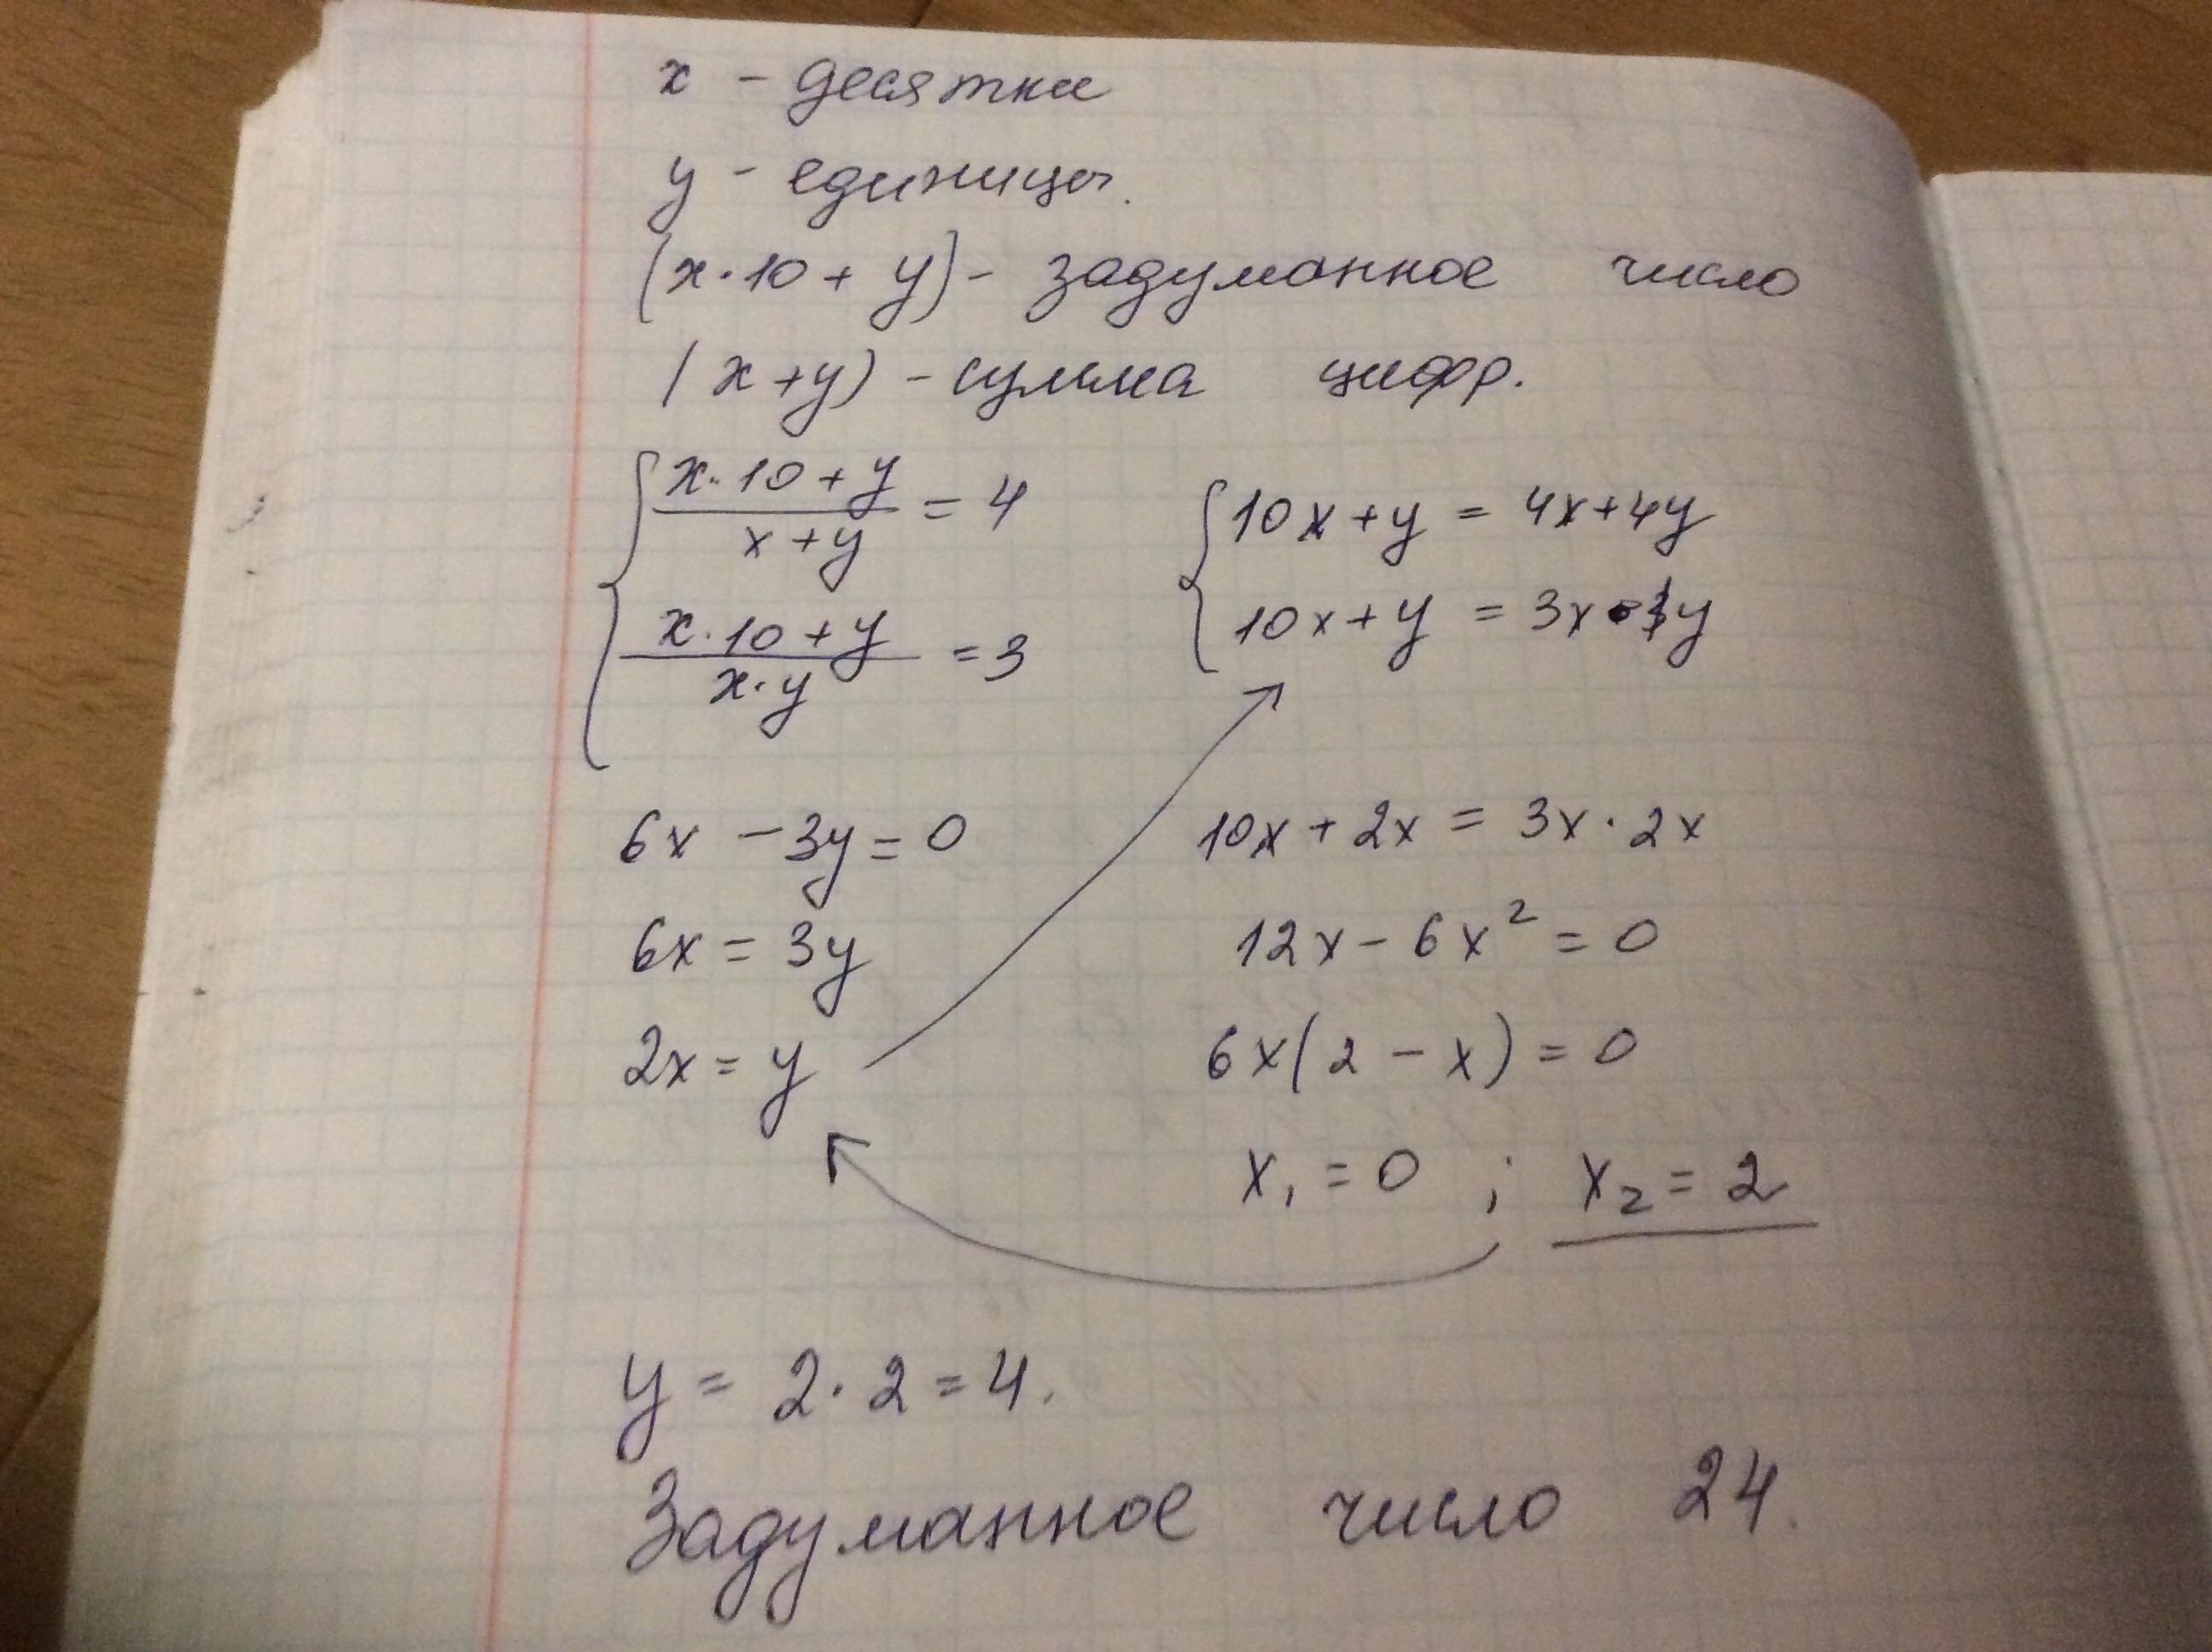 x - десятки
y - единицы.
(x·10 + y) - задуманное число
(x+y) - сумма цифр.
x·10+y / x+y = 4
x·10+y / x·y = 3
10x+y = 4x+4y
10x+y = 3x·y
6x - 3y = 0
6x = 3y
2x = y
10x + 2x = 3x·2x
12x - 6x² = 0
6x(2 - x) = 0
x₁ = 0 ; x₂ = 2
y = 2·2 = 4.
Задуманное число 24.